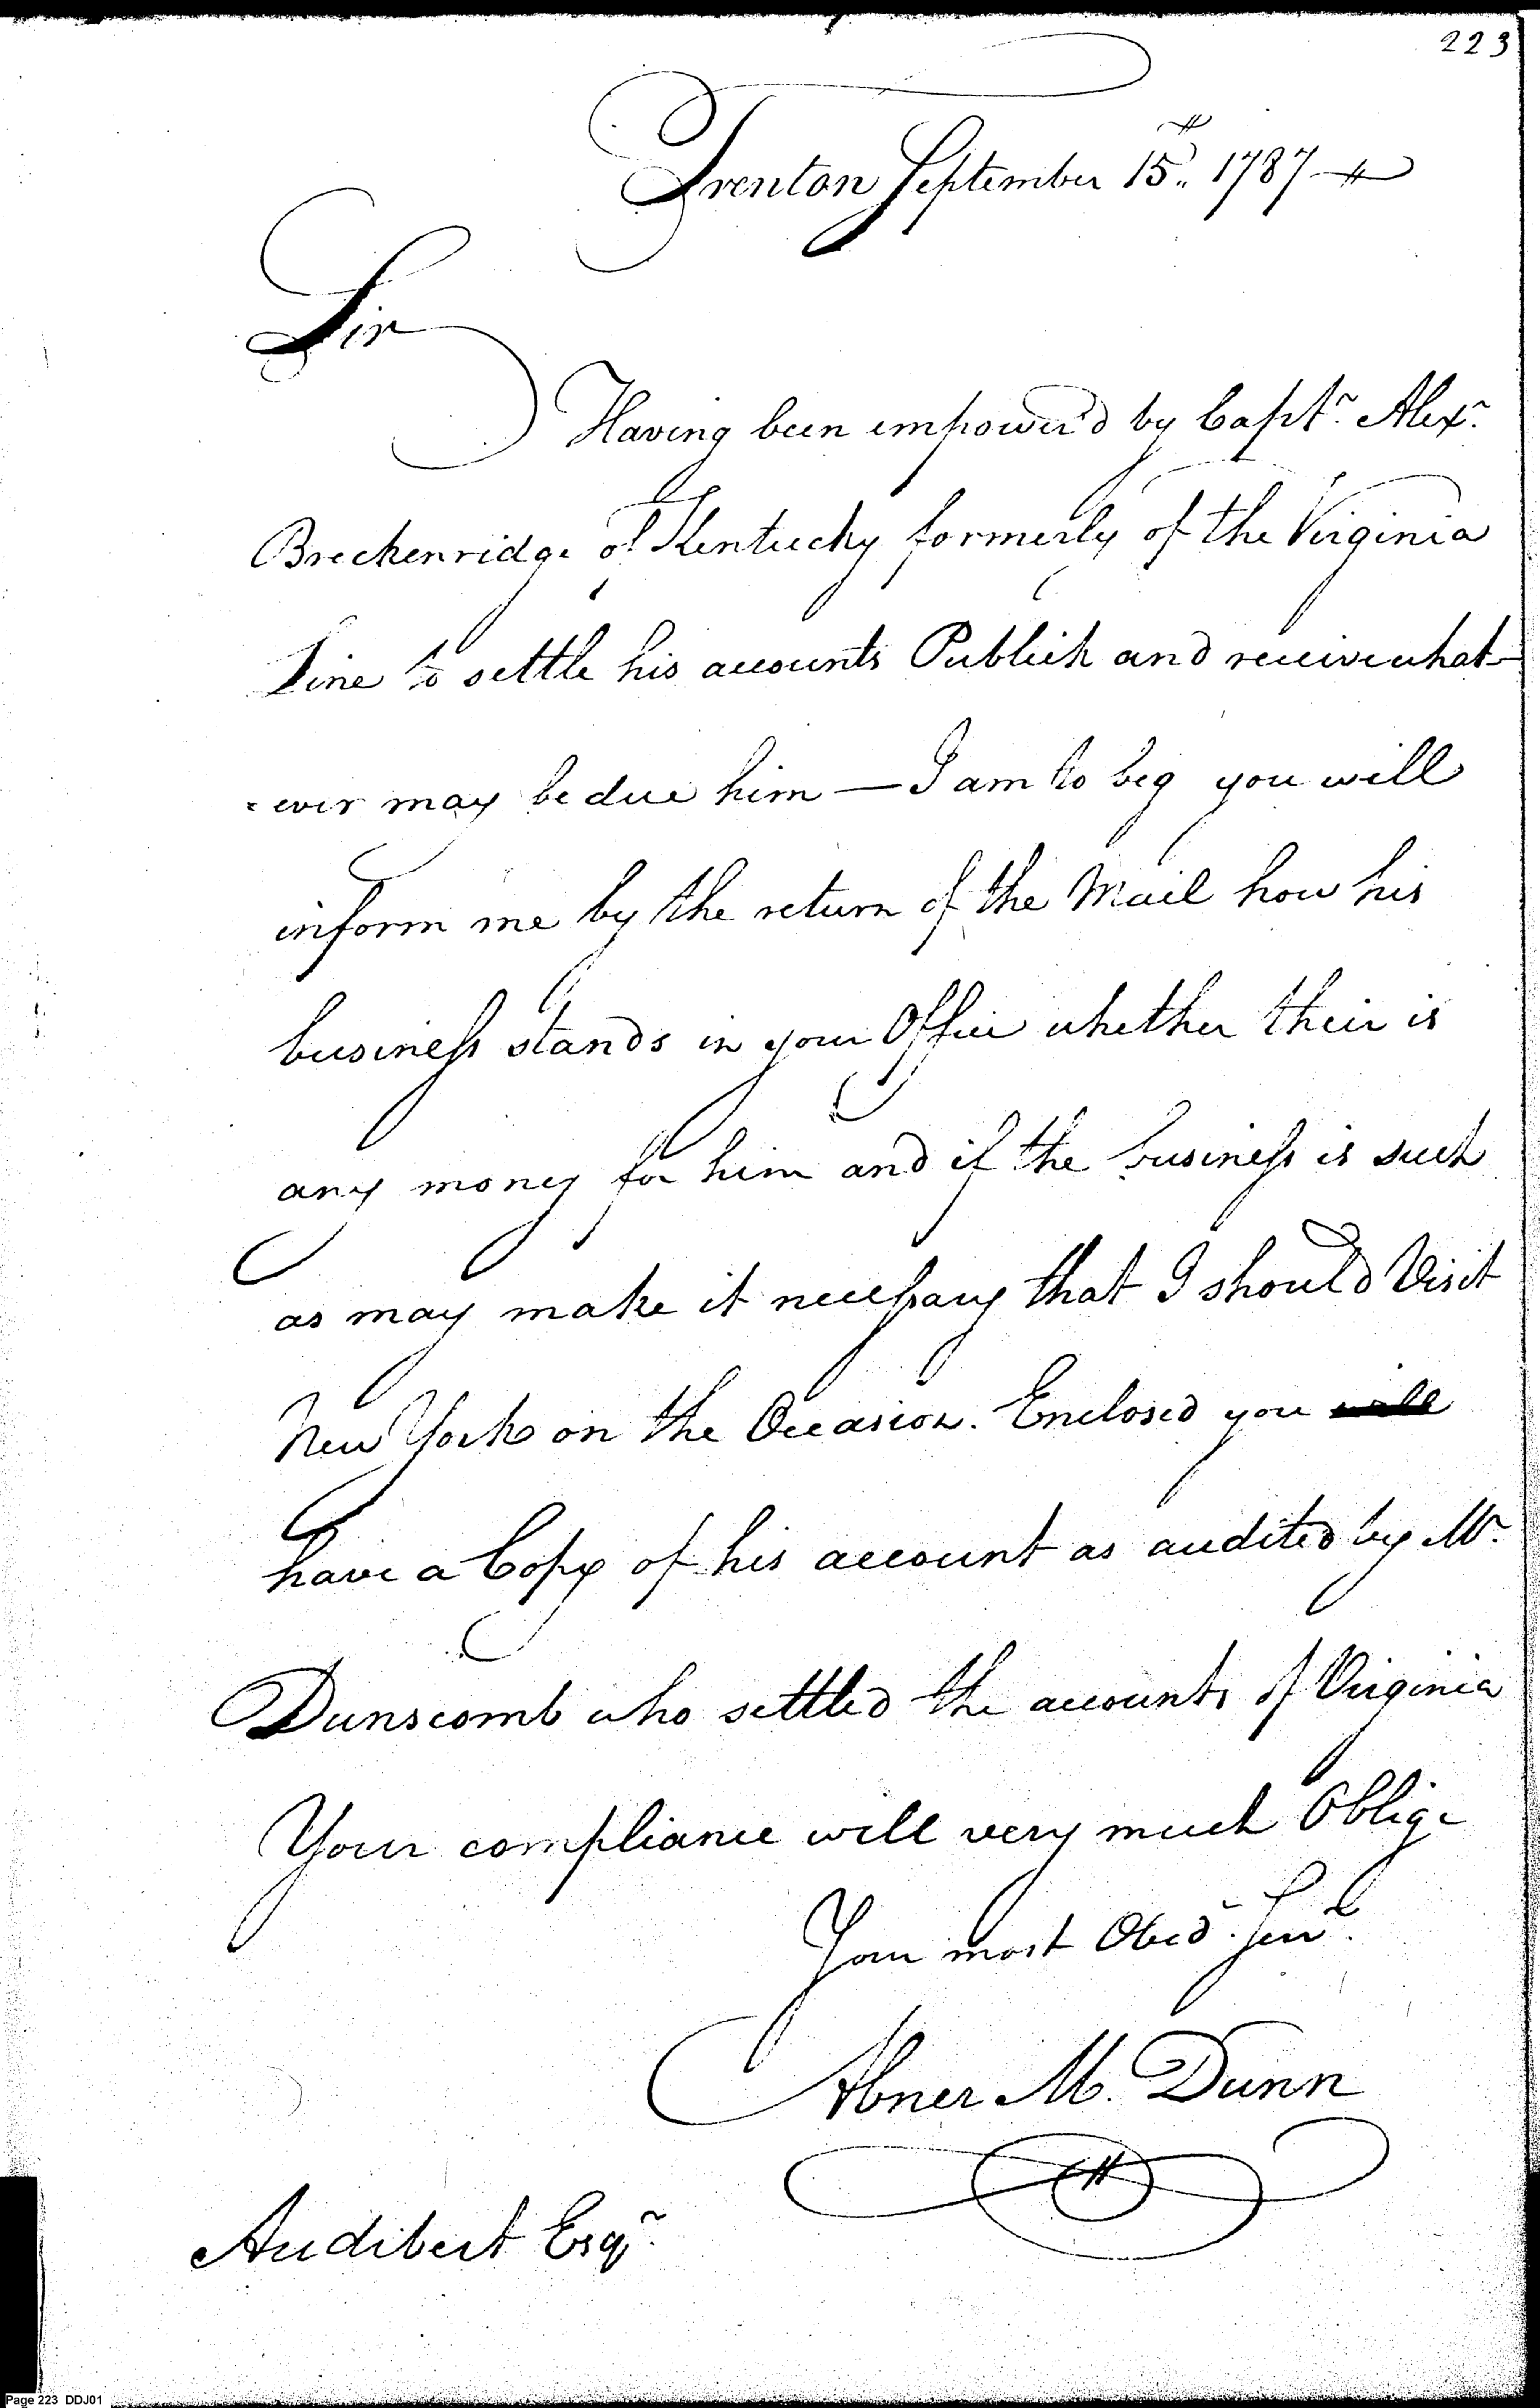 223
Trenton September 15th 1787
Sir
Having been empower'd by Capt. Alexr.
Breckenridge of Kentucky formerly of the Virginia
Line to settle his accounts Publick and receive what-
ever may be due him — I am to beg you will
inform me by the return of the Mail how his
business stands in your Office whether their is
any money for him and if the business is such
as may make it necessary that I should Visit
New York on the Occasion. Enclosed you will
have a Copy of his account as audited by Mr.
Dunscomb who settled the accounts of Virginia
Your compliance will very much Oblige
Your most Obed. Servt.
Abner M. Dunn
Audibert Esqr.
Page 223 DDJ01